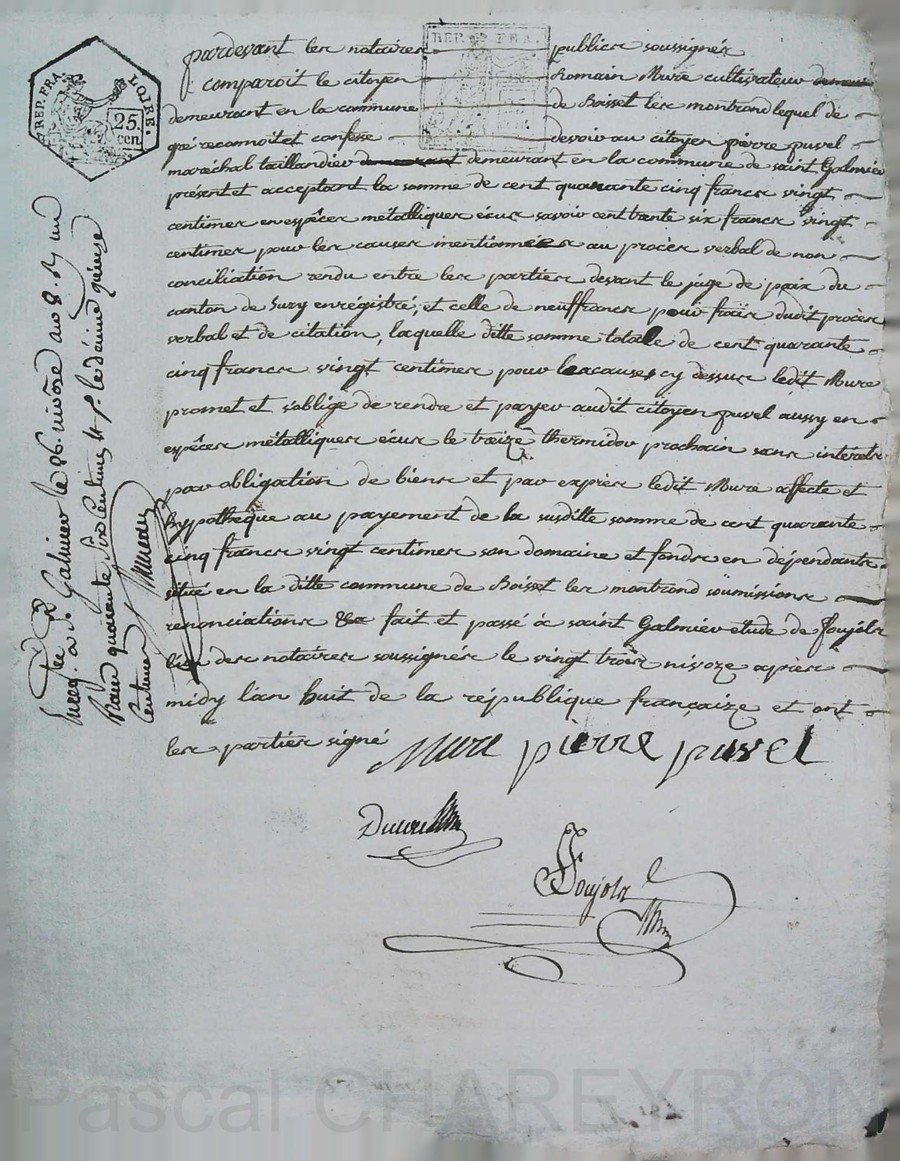 REP. FRA.
LOIRE.
25.
cen
REP. FRA.
pardevant les notaires publics soussignés
comparoit le citoyen Romain Mure cultivateur
demeurant en la commune de Boisset les montrond lequel de
gré reconnoit et confesse devoir au citoyen pierre puvel
maréchal taillandier demeurant en la commune de saint Galmier
présent et acceptant la somme de cent quarante cinq francs vingt
centimes en espèces métalliques écus savoir cent trente six francs vingt
centimes pour les causes mentionnées au procès verbal de non
conciliation rendu entre les parties devant le juge de paix du
canton de Sury enrégistré, et celle de neuf francs pour frais dudit procès
verbal et de citation, laquelle ditte somme totale de cent quarante
cinq francs vingt centimes pour les causes cy dessus ledit Mure
promet et s'oblige de rendre et payer audit citoyen puvel aussy en
espèces métalliques écus le treize thermidor prochain sans interets
par obligation de biens et par exprès ledit Mure affecte et
hyppothèque au payement de la susditte somme de cent quarante
cinq francs vingt centimes son domaine et fonds en dépendants
situé en la ditte commune de Boisset les montrond soumissions
renonciations &ca fait et passé à saint Galmier etude de Foujols
l'un des notaires soussignés le vingt trois nivoze après
midy l'an huit de la république françaize et ont
les parties signé
Mure pierre puvel
Foujols
Enreg. à St. Galmier le 26. nivose an 8.
Reçu quarante six Centimes
Centimes
Pascal CHAREYRON